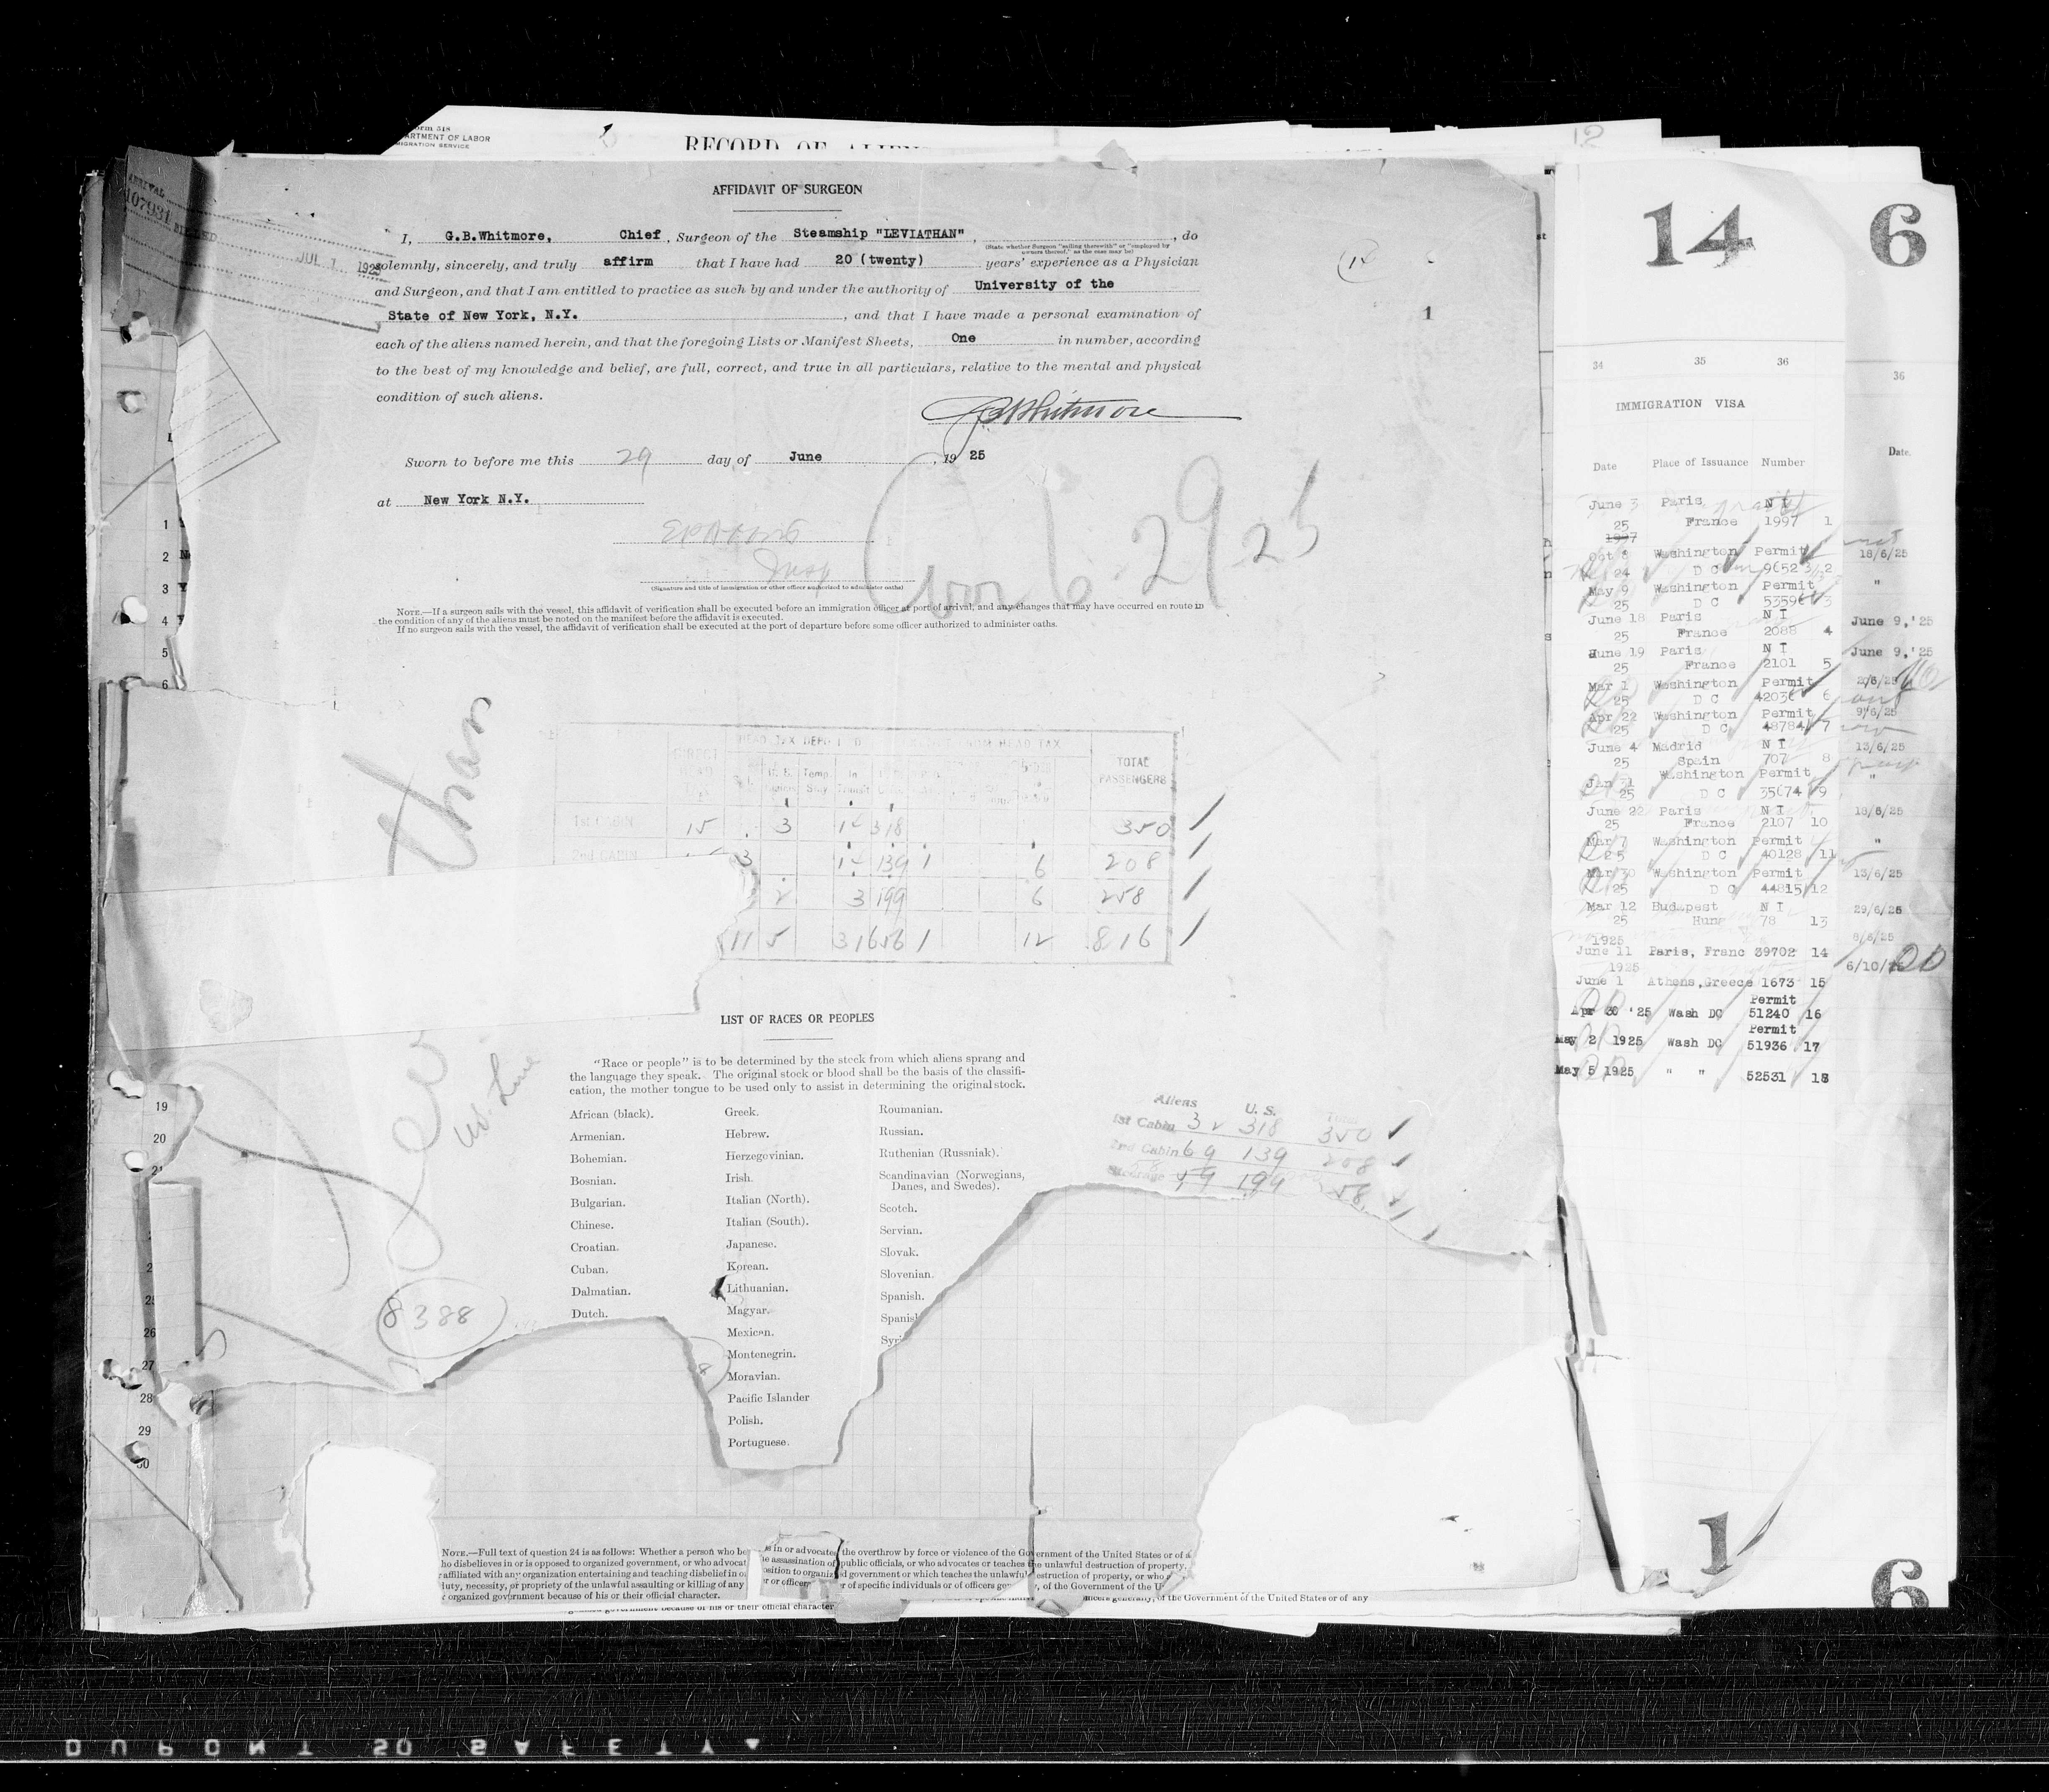 Form 518
DEPARTMENT OF LABOR
IMMIGRATION SERVICE
RECORD OF ALIEN
12
107931
JUL 1 1925
AFFIDAVIT OF SURGEON
I, G.B.Whitmore, Chief, Surgeon of the Steamship "LEVIATHAN", , do
(State whether Surgeon "sailing therewith" or "employed by
owners thereof," as the case may be)
solemnly, sincerely, and truly affirm that I have had 20 (twenty) years' experience as a Physician
and Surgeon, and that I am entitled to practice as such by and under the authority of University of the
State of New York, N.Y. , and that I have made a personal examination of
each of the aliens named herein, and that the foregoing Lists or Manifest Sheets, One in number, according
to the best of my knowledge and belief, are full, correct, and true in all particulars, relative to the mental and physical
condition of such aliens.
GBWhitmore
Sworn to before me this 29 day of June , 19 25
at New York N.Y.
Insp
(Signature and title of immigration or other officer authorized to administer oaths)
6-29-25
NOTE.—If a surgeon sails with the vessel, this affidavit of verification shall be executed before an immigration officer at port of arrival, and any changes that may have occurred en route in
the condition of any of the aliens must be noted on the manifest before the affidavit is executed.
If no surgeon sails with the vessel, the affidavit of verification shall be executed at the port of departure before some officer authorized to administer oaths.
1
1
2
3
4
5
6
HEAD TAX
TOTAL
PASSENGERS
Temp. Stay
In Transit
1st CABIN 15 3 14 318 350
2nd CABIN 3 14 139 1 6 208
2 3 199 6 258
11 5 31 656 1 12 816
Leviathan
U.S. Line
8388
LIST OF RACES OR PEOPLES
"Race or people" is to be determined by the stock from which aliens sprang and
the language they speak. The original stock or blood shall be the basis of the classifi-
cation, the mother tongue to be used only to assist in determining the original stock.
African (black).
Armenian.
Bohemian.
Bosnian.
Bulgarian.
Chinese.
Croatian.
Cuban.
Dalmatian.
Dutch.
Greek.
Hebrew.
Herzegovinian.
Irish.
Italian (North).
Italian (South).
Japanese.
Korean.
Lithuanian.
Magyar.
Mexican.
Montenegrin.
Moravian.
Pacific Islander
Polish.
Portuguese.
Roumanian.
Russian.
Ruthenian (Russniak).
Scandinavian (Norwegians,
Danes, and Swedes).
Scotch.
Servian.
Slovak.
Slovenian.
Spanish.
Spanish
Aliens U.S.
1st Cabin 32 318 350
2nd Cabin 69 139 208
Steerage 59 199 58
19
20
21
25
26
27
28
29
30
NOTE.—Full text of question 24 is as follows: Whether a person who be in or advocates the overthrow by force or violence of the Government of the United States or of a
ho disbelieves in or is opposed to organized government, or who advocat e assassination of public officials, or who advocates or teaches the unlawful destruction of property,
affiliated with any organization entertaining and teaching disbelief in o osition to organiz d government or which teaches the unlawful destruction of property, or who
duty, necessity, or propriety of the unlawful assaulting or killing of any r or officers r of specific individuals or of officers gen , of the Government of the U
r organized government because of his or their official character.
government because of his or their official character
officers generally, of the Government of the United States or of any
14
34 35 36
IMMIGRATION VISA
Date Place of Issuance Number
June 3 Paris, N I
25 France 1997 1
1997
Oct 8 Washington Permit
24 D C 96523 2
May 9 Washington Permit
25 D C 53596 3
June 18 Paris N I
25 France 2088 4
June 19 Paris N I
25 France 2101 5
Mar 1 Washington Permit
25 D C 42036 6
Apr 22 Washington Permit
25 D C 48784 7
June 4 Madrid N I
25 Spain 707 8
Jan 31 Washington Permit
25 D C 35674 9
June 22 Paris N I
25 France 2107 10
Mar 7 Washington Permit
25 D C 40128 11
Mar 30 Washington Permit
25 D C 44815 12
Mar 12 Budapest N I
25 Hung 78 13
1925
June 11 Paris, Franc 39702 14
1925
June 1 Athens,Greece 1673 15
Permit
Apr 30 '25 Wash DC 51240 16
Permit
May 2 1925 Wash DC 51936 17
May 5 1925 " " 52531 18
1
6
36
Date.
18/6/25
"
June 9,'25
June 9,'25
2/6/25
9/6/25
13/6/25
"
18/6/25
"
13/6/25
29/6/25
6/6/25
6/10/25
6
DUPONT SO SAFETY